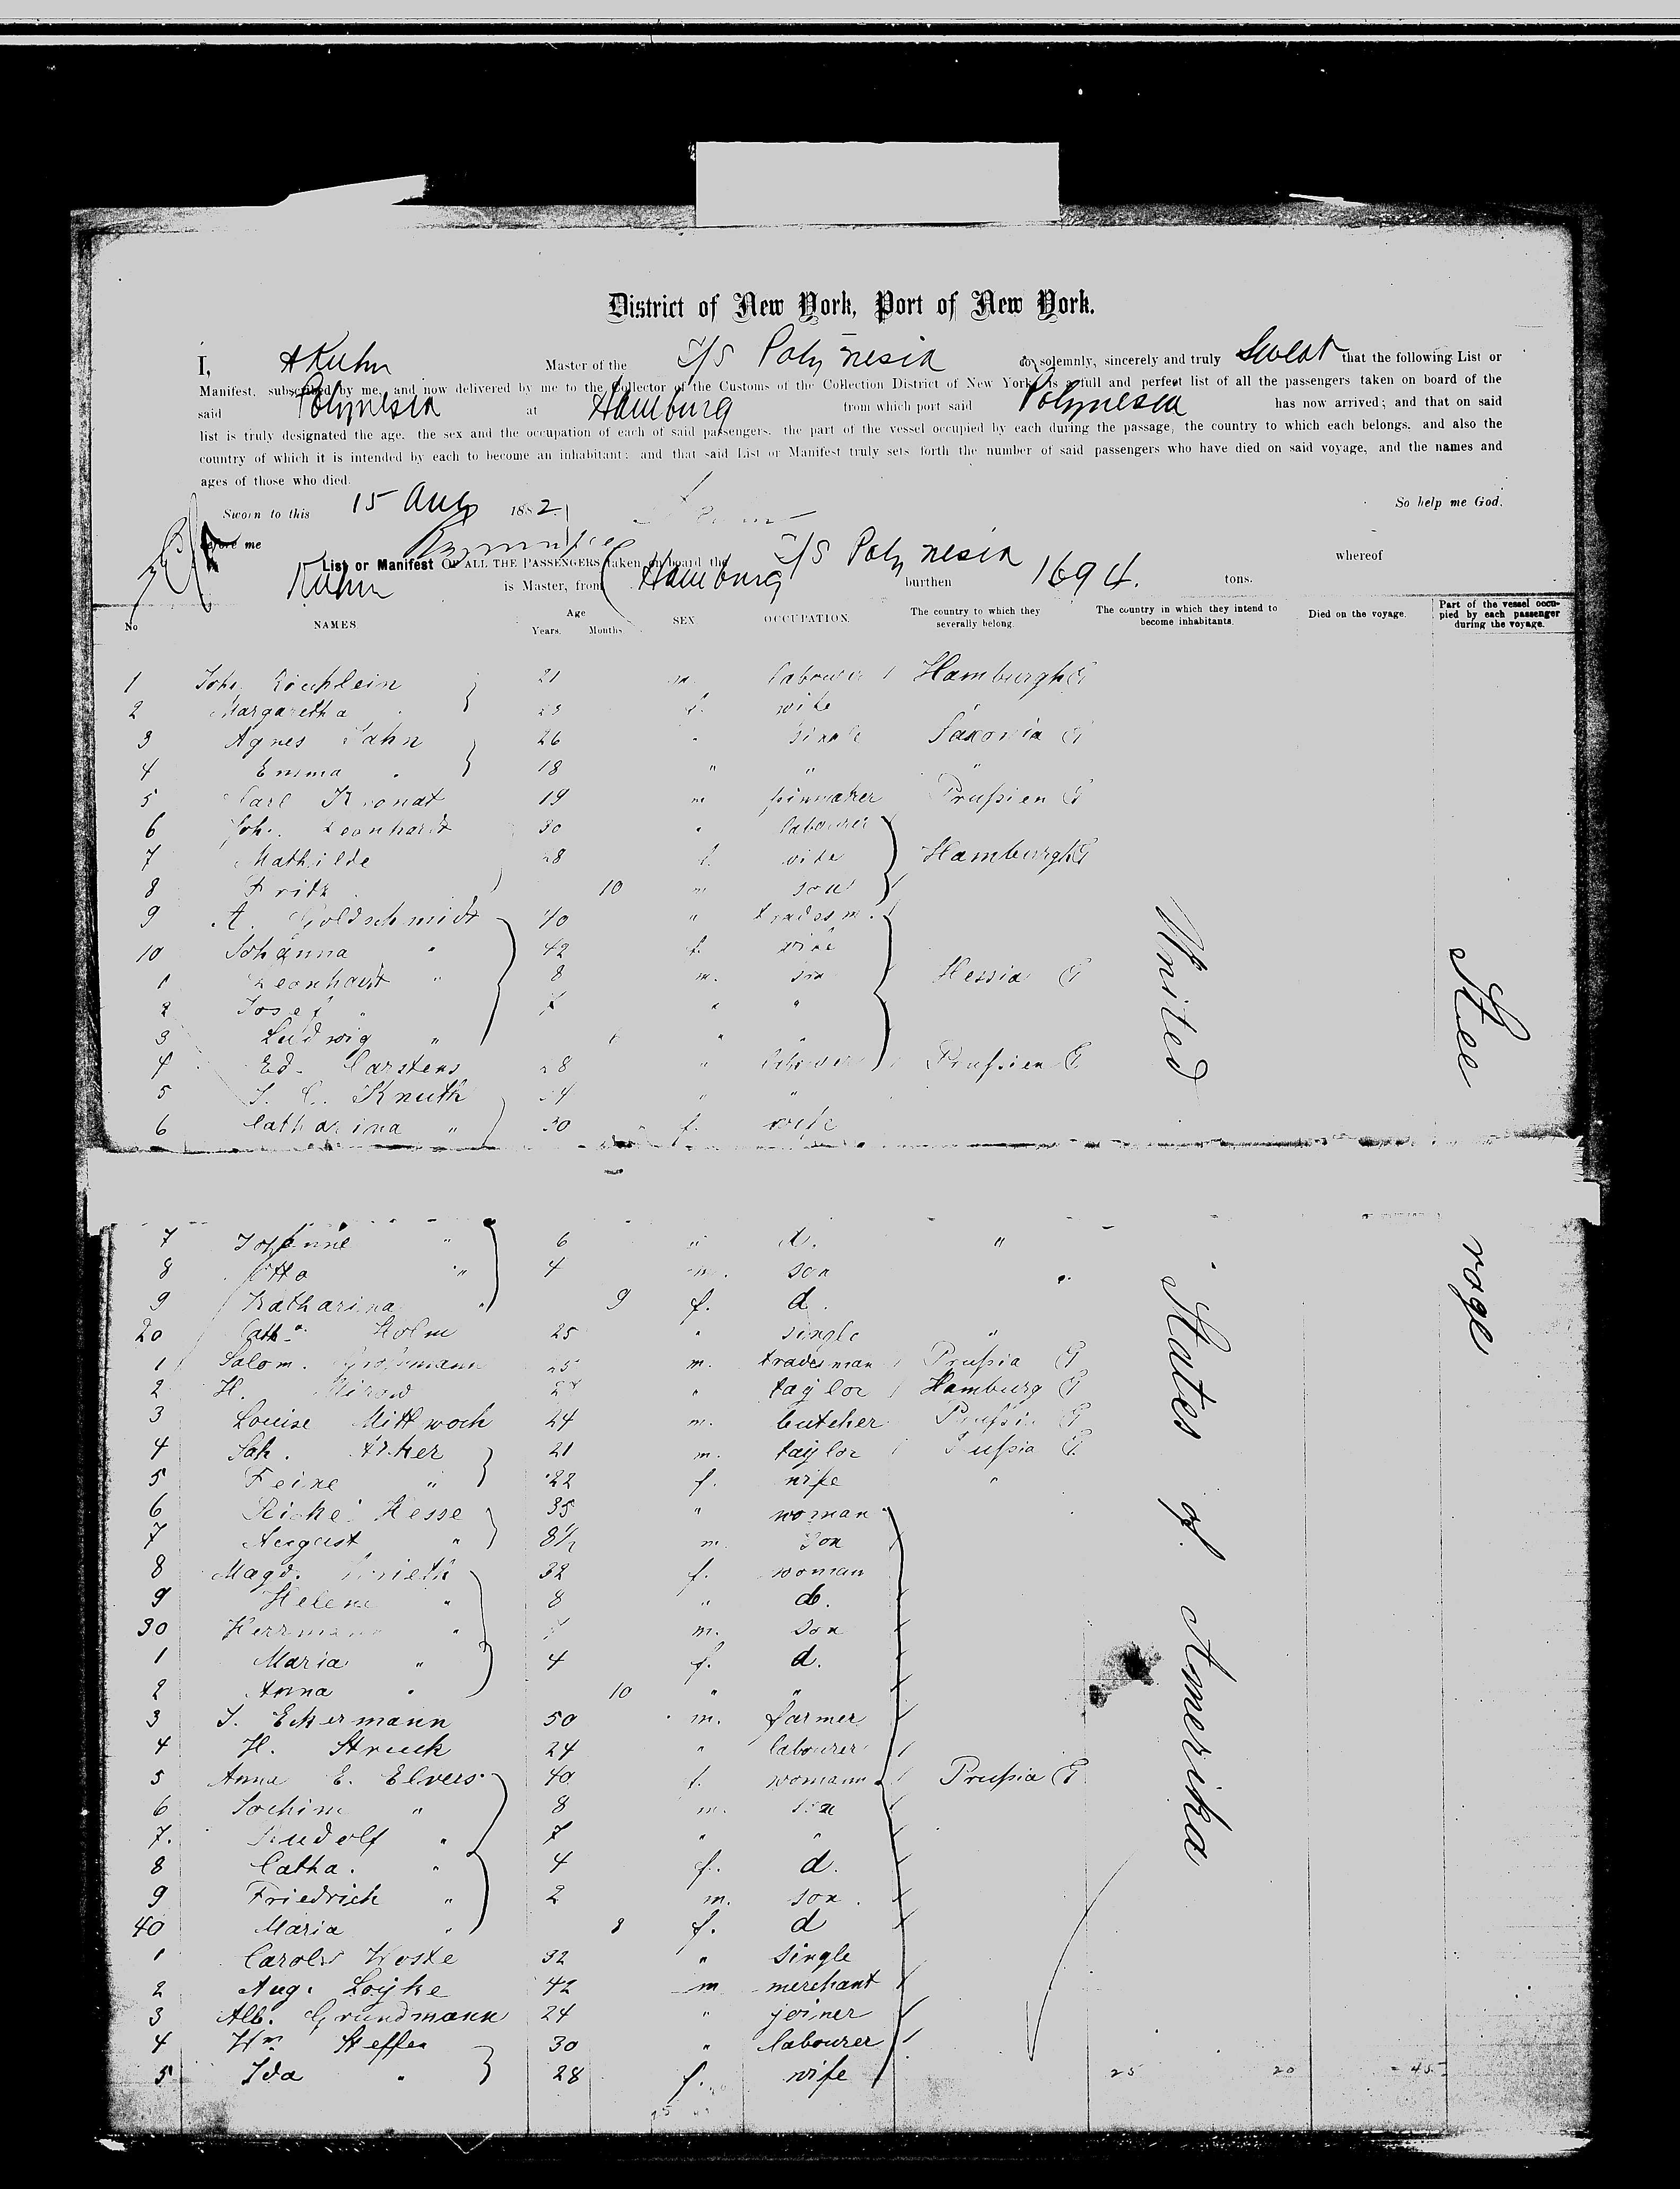 District of New York, Port of New York.
I, A Kuhn Master of the S/S Polynesia do solemnly, sincerely and truly Swear that the following List or
Manifest, subscribed by me, and now delivered by me to the Collector of the Customs of the Collection District of New York, is a full and perfect list of all the passengers taken on board of the
said Polynesia at Hamburg from which port said Polynesia has now arrived; and that on said
list is truly designated the age, the sex and the occupation of each of said passengers, the part of the vessel occupied by each during the passage, the country to which each belongs, and also the
country of which it is intended by each to become an inhabitant; and that said List or Manifest truly sets forth the number of said passengers who have died on said voyage, and the names and
ages of those who died.
So help me God.
Sworn to this 15 Aug 1882
before me
List or Manifest OF ALL THE PASSENGERS taken on board the S/S Polynesia whereof
Kuhn is Master, from Hamburg burthen 1694. tons.
No NAMES. Age Years. Months. SEX. OCCUPATION. The country to which they severally belong. The country in which they intend to become inhabitants. Died on the voyage. Part of the vessel occupied by each passenger during the voyage.
1 Joh. 21 m. labourer Hamburgh G
2 Margaretha 23 f. wife
3 Agnes Jahn 26 " single Saxonia G
4 Emma " 18 " " "
5 Carl 19 m Prussien G
6 Joh. Leonhardt 30 " labourer
7 Mathilde 28 f. wife Hamburgh G
8 Fritz 10 m son
9 A. Goldschmidt 40 " tradesm.
10 Johanna " 42 f. wife
1 Leonhardt " 8 m. son Hessia G
2 Josef " 7 " "
3 Ludwig " " "
4 Ed. Carstens 28 " labourer Prussien G
5 J. C. Knuth 34 " "
6 Catharina " 30 f. wife
7 " 6 " d. "
8 Otto " 4 m. son "
9 Katharina " 9 f. d.
20 Cath. Holm 25 " single "
1 Salom. 25 m. tradesman Prussia G
2 H. Mirow " taylor Hamburg G
3 Louise Mittwoch 24 m. butcher Prussia G
4 Sah. 21 m. taylor G
5 Feine " 22 f. wife "
6 Hesse 35 " woman
7 August " 8 1/2 m. son
8 Magd. 32 f. woman
9 Helene " 8 " d.
30 Herrmann " m. son
1 Maria " 4 f. d.
2 Anna " 10 " "
3 J. Eckermann 50 m. farmer
4 H. Struck 24 " labourer
5 Anna E. Elvers 40 f. womann Prussia G
6 Jochim " 8 m. son
7. Rudolf " 7 " "
8 Catha. " 4 f. d.
9 Friedrich " 2 m. son.
40 Maria " 8 f. d
1 Carol. 32 " single
2 Aug. Loyke 42 m merchant
3 Alb. Grundmann 24 " joiner
4 Wm Steffen 30 " labourer
5 Ida " 28 f. wife
25 20 45
United States of Amerika
Steerage